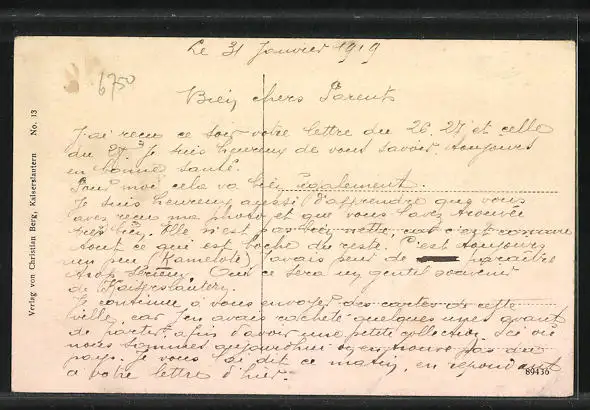 Le 31 Janvier 1919
6750
Bien chers Parents
J'ai reçu ce soir votre lettre du 26, 27, et celle
du 27. Je suis heureux de vous savoir toujours
en bonne santé.
Pour moi cela va bien également.
Je suis heureux aussi d'apprendre que vous
avez reçu ma photo et que vous l'avez trouvée
très bien. Elle n'est pas bien nette, mais c'est comme
tout ce qui est boche du reste. C'est toujours
un peu (Kamelote) j'avais peur de paraître
trop sérieux. Oui ce sera un gentil souvenir
de Kaiserslautern.
Je continue à vous envoyer des cartes de cette
ville, car j'en avais racheté quelques unes avant
de partir, afin d'avoir une petite collection. Ici où
nous sommes aujourd'hui on en trouve pas du
pays. Je vous l'ai dit ce matin, en répondant
à votre lettre d'hier.
Verlag von Christian Berg, Kaiserslautern No. 13
89436